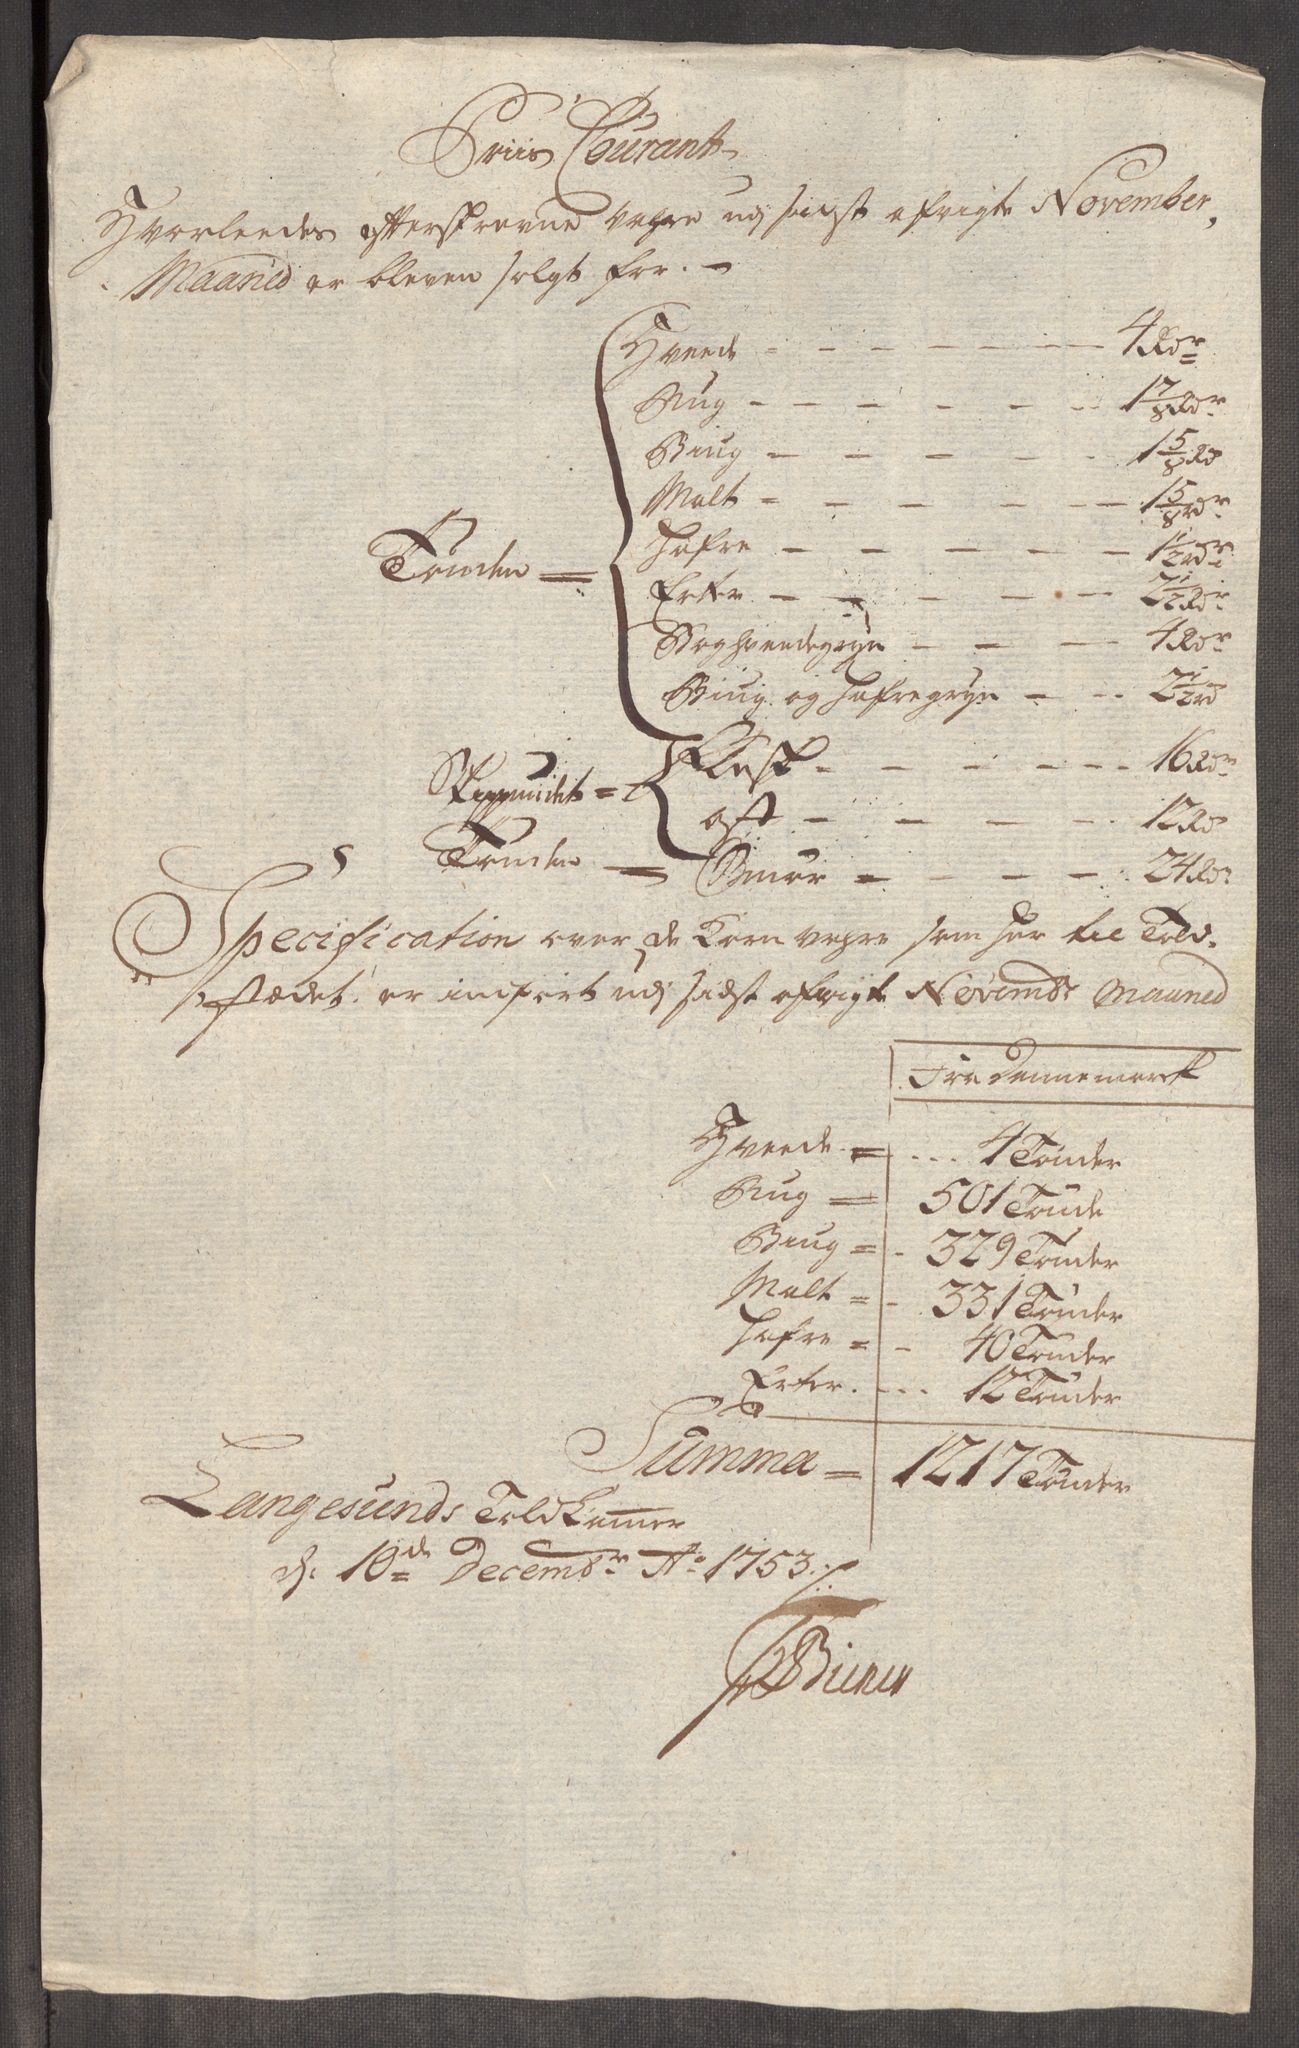 Priis Courant
Hvorleedes efterskrevne vahre udj sidst afvigte November
Maaned er bleven solgt for. —
Hveede — 4 Rdr
Rug — 1 7/8 Rdr
Biug — 1 5/8 Rd
Malt — 1 5/8 rdr
Tønden = hafre — 1 1/2 rdr
Erter — 2 1/2 Rdr
Boghveedegryn — 4 Rdr
Biug og hafregryn — 2 1/2 rd
Skippundet = Flesk — 16 Rdr
ost — 12 Rd
Tønden — Smør — 24 Rdr
Specification over de Korn vahre som her til Told-
stædet er inført udj sidst afvigte Novembr Maaned
Fra Dannemarck
Hveede = 4 Tønder
Rug = 501 Tønde
Biug = 329 Tønder
Malt = 331 Tønder
hafre = 40 Tønder
Erter. 12 Tønder
Summa = 1217 Tønder
Langesunds Told Kammer
d. 10de Decembr Ao 1753